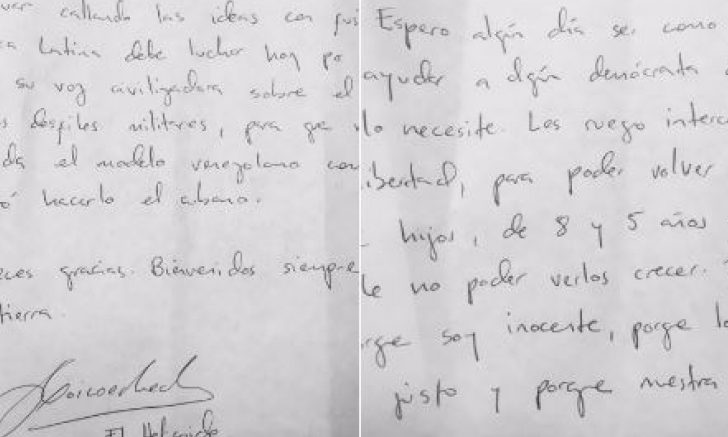 callando las ideas con
Latina debe luchar hoy po
su voz civilizadora sobre el
desfiles militares, para que
da el modelo venezolano con
ó hacerlo el cubano.
gracias. Bienvenidos siempre
tierra.
El
Espero algún día ser como
ayudar a algún demócrata
lo necesite. Les ruego interc
libertad, para poder volver
hijos, de 8 y 5 años
de no poder verlos crecer.
rque soy inocente, porque lo
justo y porque nuestra